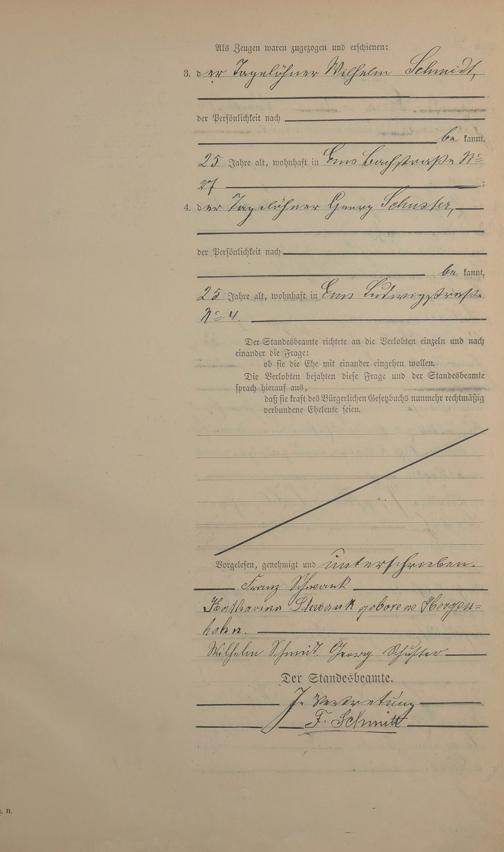 Als Zeugen waren zugezogen und erschienen:
3. der Tagelöhner Wilhelm Schmidt,
der Persönlichkeit nach
be kannt,
25 Jahre alt, wohnhaft in Ems Bachstraße No
27 ;
4. der Tagelöhner Georg Schuster,
der Persönlichkeit nach
be kannt,
25 Jahre alt, wohnhaft in Ems Ludwigstraße
No 4.
Der Standesbeamte richtete an die Verlobten einzeln und nach
einander die Frage:
ob sie die Ehe mit einander eingehen wollen.
Die Verlobten bejahten diese Frage und der Standesbeamte
sprach hierauf aus,
daß sie kraft des Bürgerlichen Gesetzbuchs nunmehr rechtmäßig
verbundene Eheleute seien.
Vorgelesen, genehmigt und unterschrieben.
Franz Schwank
Katharina Schwank geborene Hergen=
hahn.
Wilhelm Schmidt. Georg Schuster
Der Standesbeamte.
In Vertretung
F. Schmitt